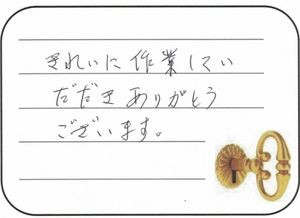 きれいに作業してい
だだきありがとう
ございます。